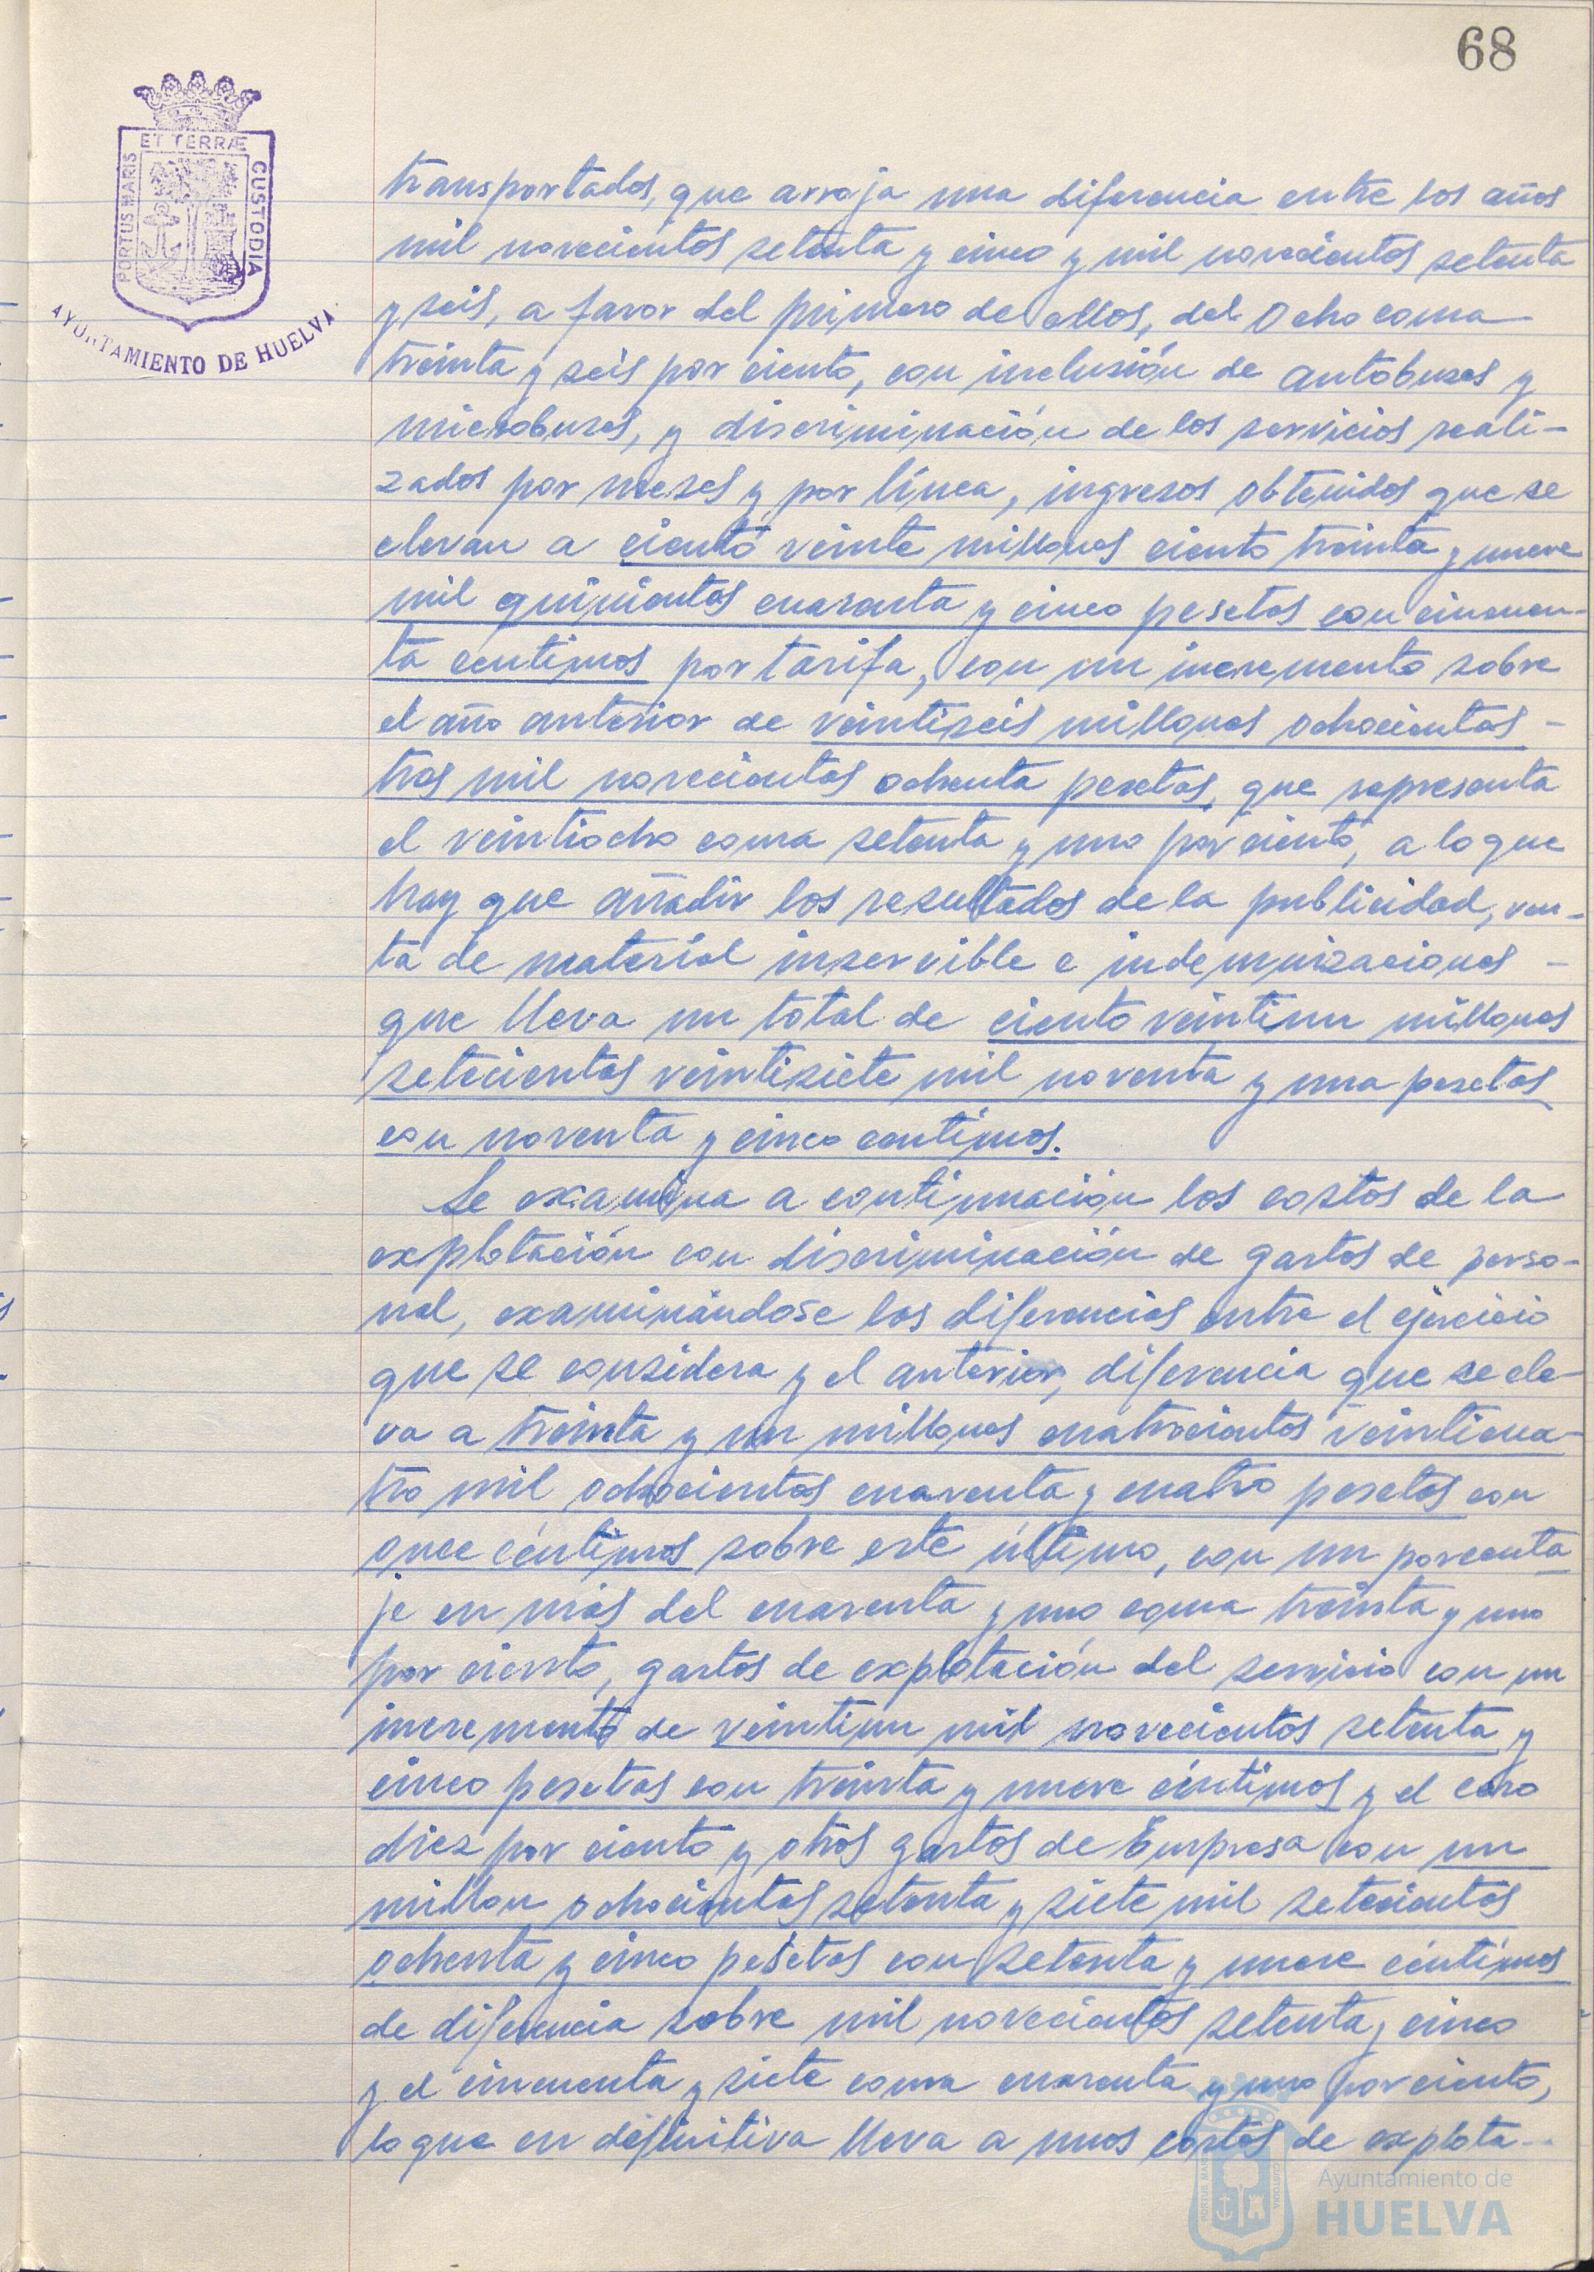 68
ET TERRÆ
PORTUS MARIS
CUSTODIA
AYUNTAMIENTO DE HUELVA
transportados, que arroja una diferencia entre los años
mil novecientos setenta y cinco y mil novecientos setenta
y seis, a favor del primero de ellos, del ocho coma
treinta y seis por ciento, con inclusión de autobuses y
microbuses, y discriminación de los servicios reali-
zados por meses y por línea, ingresos obtenidos que se
elevan a ciento veinte millones ciento treinta y nueve
mil quinientas cuarenta y cinco pesetas con cincuen-
ta centimos por tarifa, con un incremento sobre
el año anterior de veintiseis millones ochocientas -
tres mil novecientas ochenta pesetas, que representa
el veintiocho coma setenta y uno por ciento, a lo que
hay que añadir los resultados de la publicidad, ven-
ta de material inservible e indemnizaciones -
que lleva un total de ciento veintiun millones
setecientas veintisiete mil noventa y una pesetas
con noventa y cinco centimos.
Se examina a continuación los costos de la
explotación con discriminación de gastos de perso-
nal, examinándose las diferencias entre el ejercicio
que se considera y el anterior, diferencia que se ele-
va a treinta y un millones cuatrocientas veinticua-
tro mil ochocientas cuarenta y cuatro pesetas con
once céntimos sobre este último, con un porcenta
je en más del cuarenta y uno coma treinta y uno
por ciento, gastos de explotación del servicio con un
incremento de veintiun mil novecientas setenta y
cinco pesetas con treinta y nueve céntimos y el cero
diez por ciento y otros gastos de Empresa con un
millon ochocientas setenta y siete mil setecientas
ochenta y cinco pesetas con setenta y nueve céntimos
de diferencia sobre mil novecientos setenta y cinco
y el cincuenta y siete coma cuarenta y uno por ciento,
lo que en definitiva lleva a unos costos de explota-
Ayuntamiento de
HUELVA